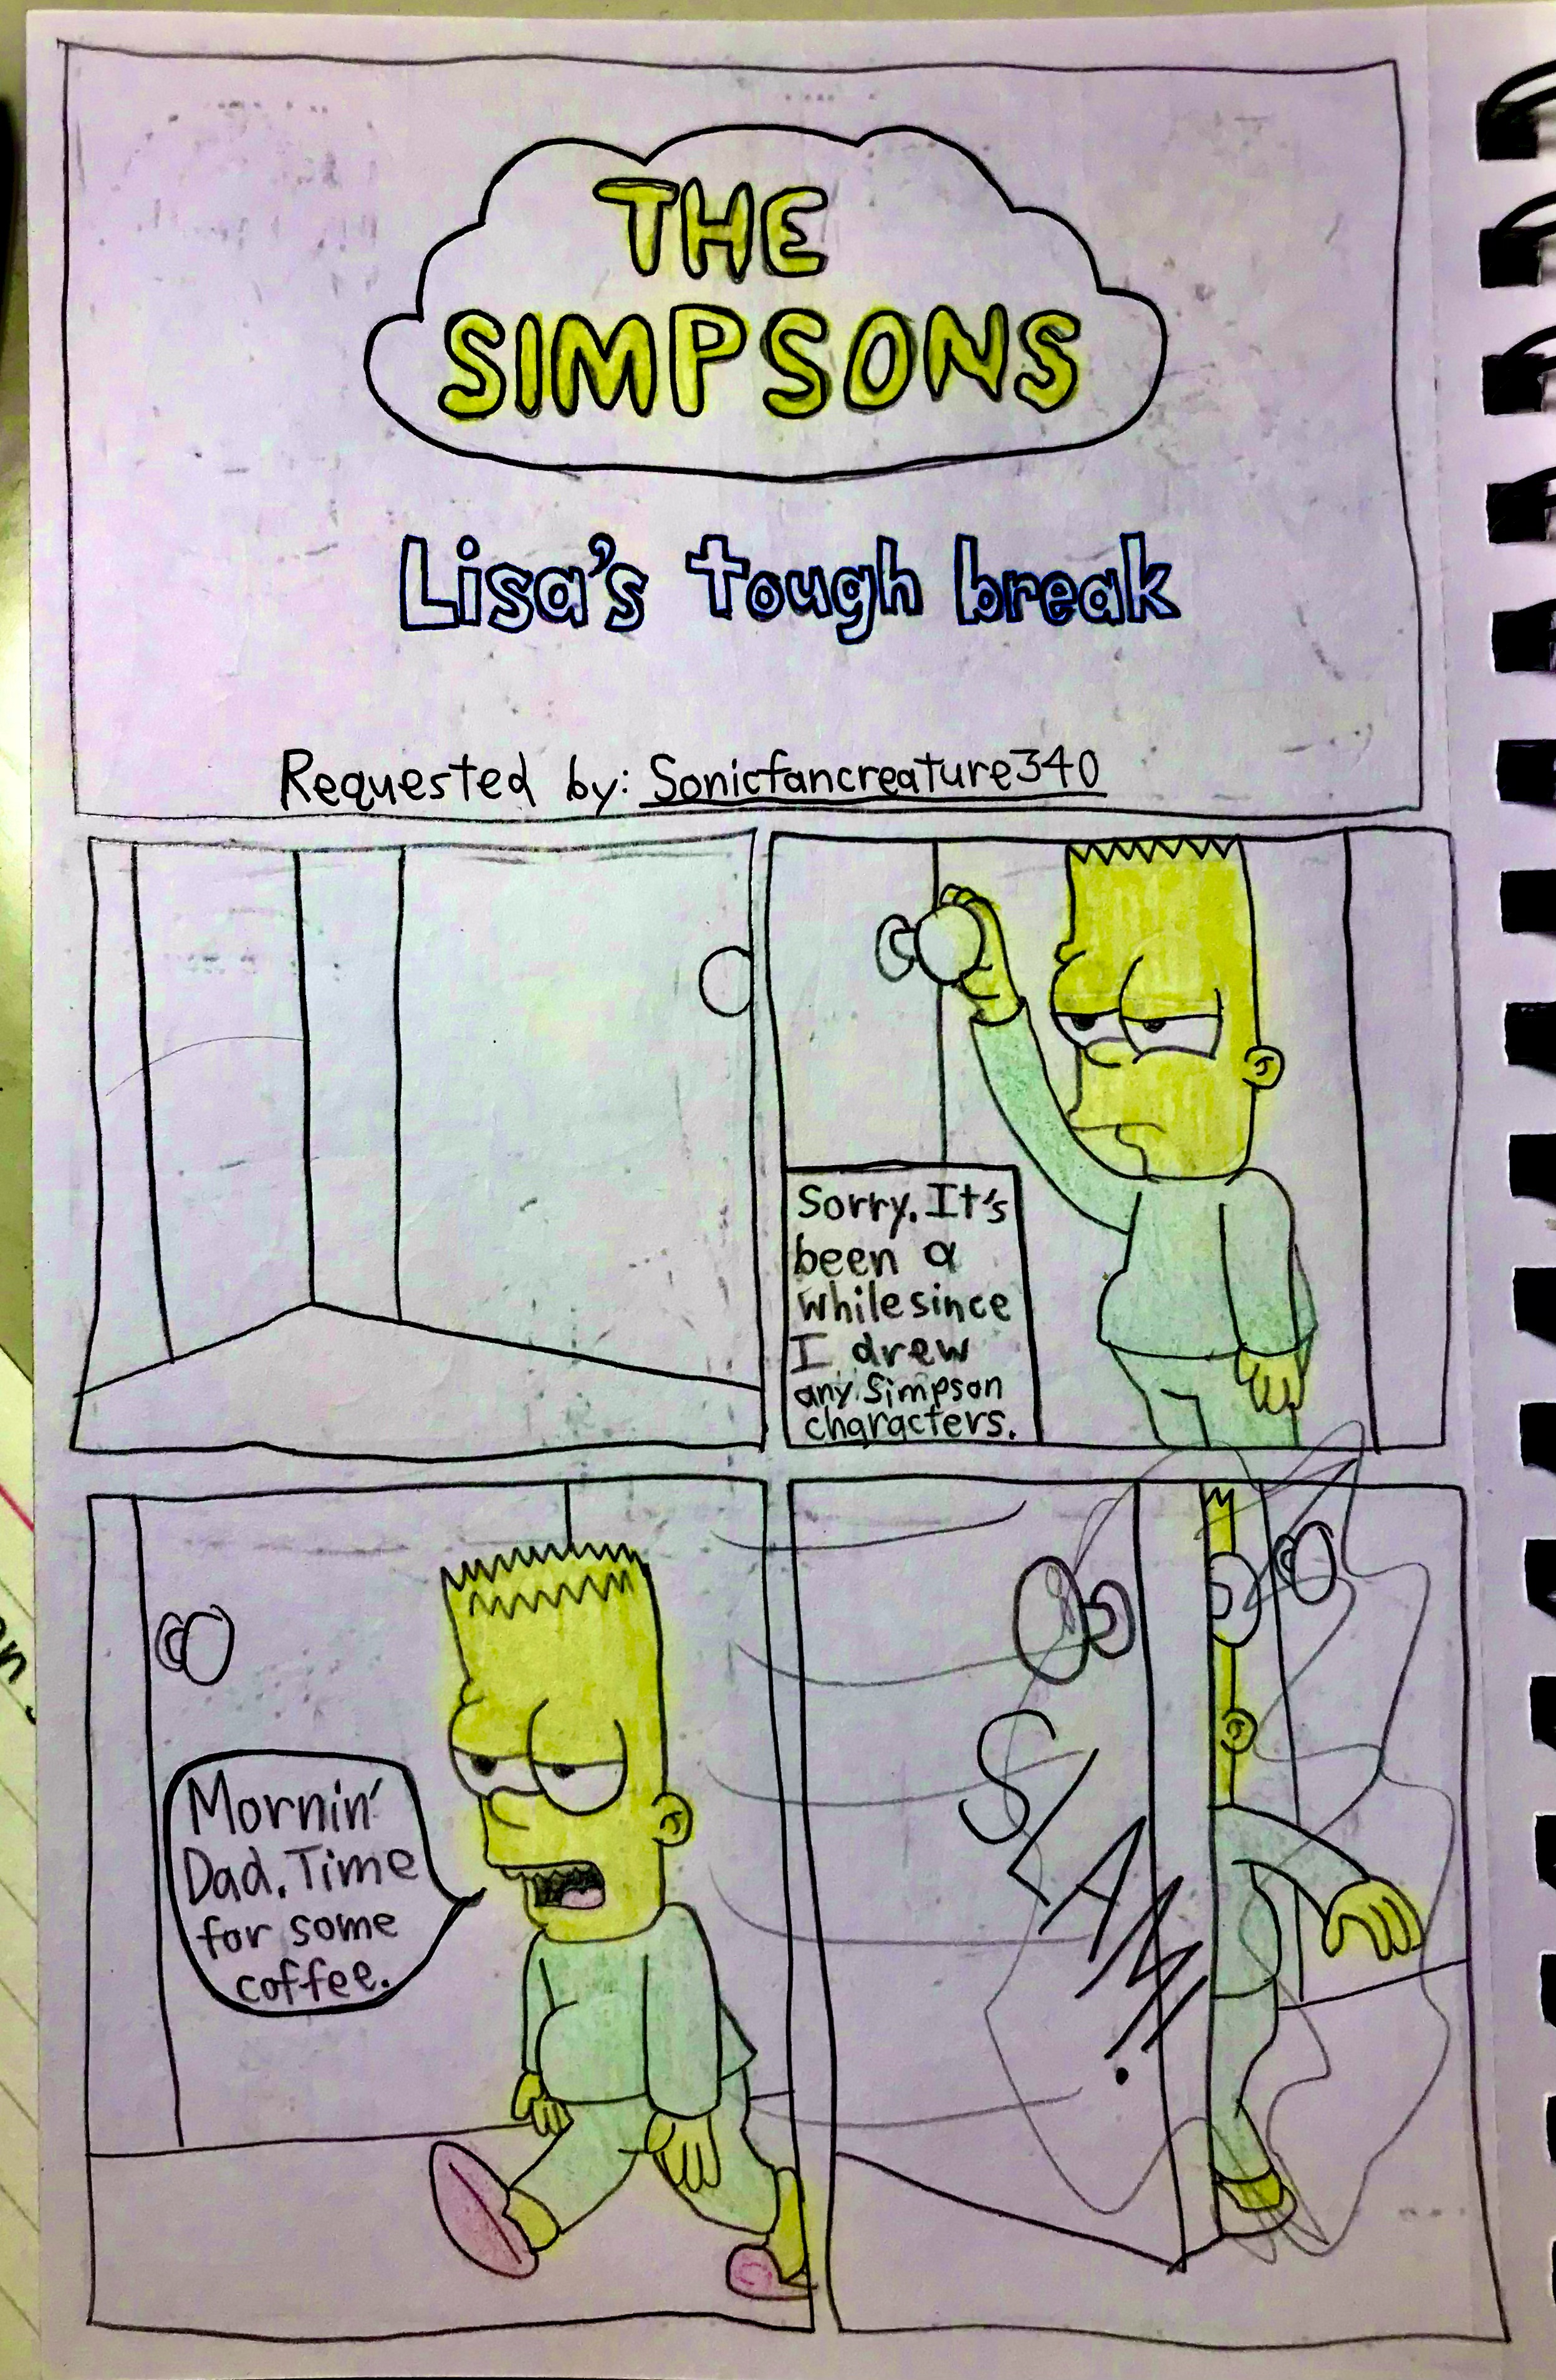 THE
SIMPSONS
Lisa's tough break
Requested by: Sonicfancreature340
Sorry. It's
been a
while since
I drew
any Simpson
characters.
Mornin'
Dad. Time
for some
coffee.
SLAM!